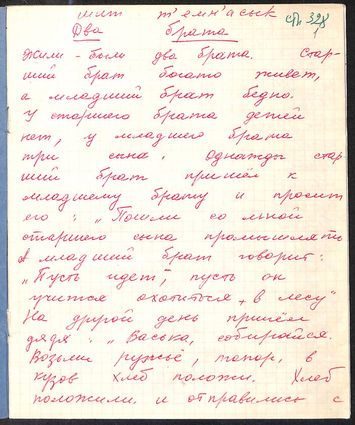 шит т'емн'асык стр. 328
Два брата
Жили-были два брата. Стар-
ший брат богато живёт,
а младший брат бедно.
У старшего брата детей
нет, у младшего брата
три сына. Однажды стар
ший брат пришёл к
младшему брату и просит
его: „Пошли со мной
старшего сына промышлять
А младший брат говорит:
„Пусть идет", пусть он
учится охотиться в лесу"
На другой день пришёл
дядя: „Васька, собирайся.
Возьми ружьё, топор, в
кузов хлеб положи. Хлеб
положили и отправились с